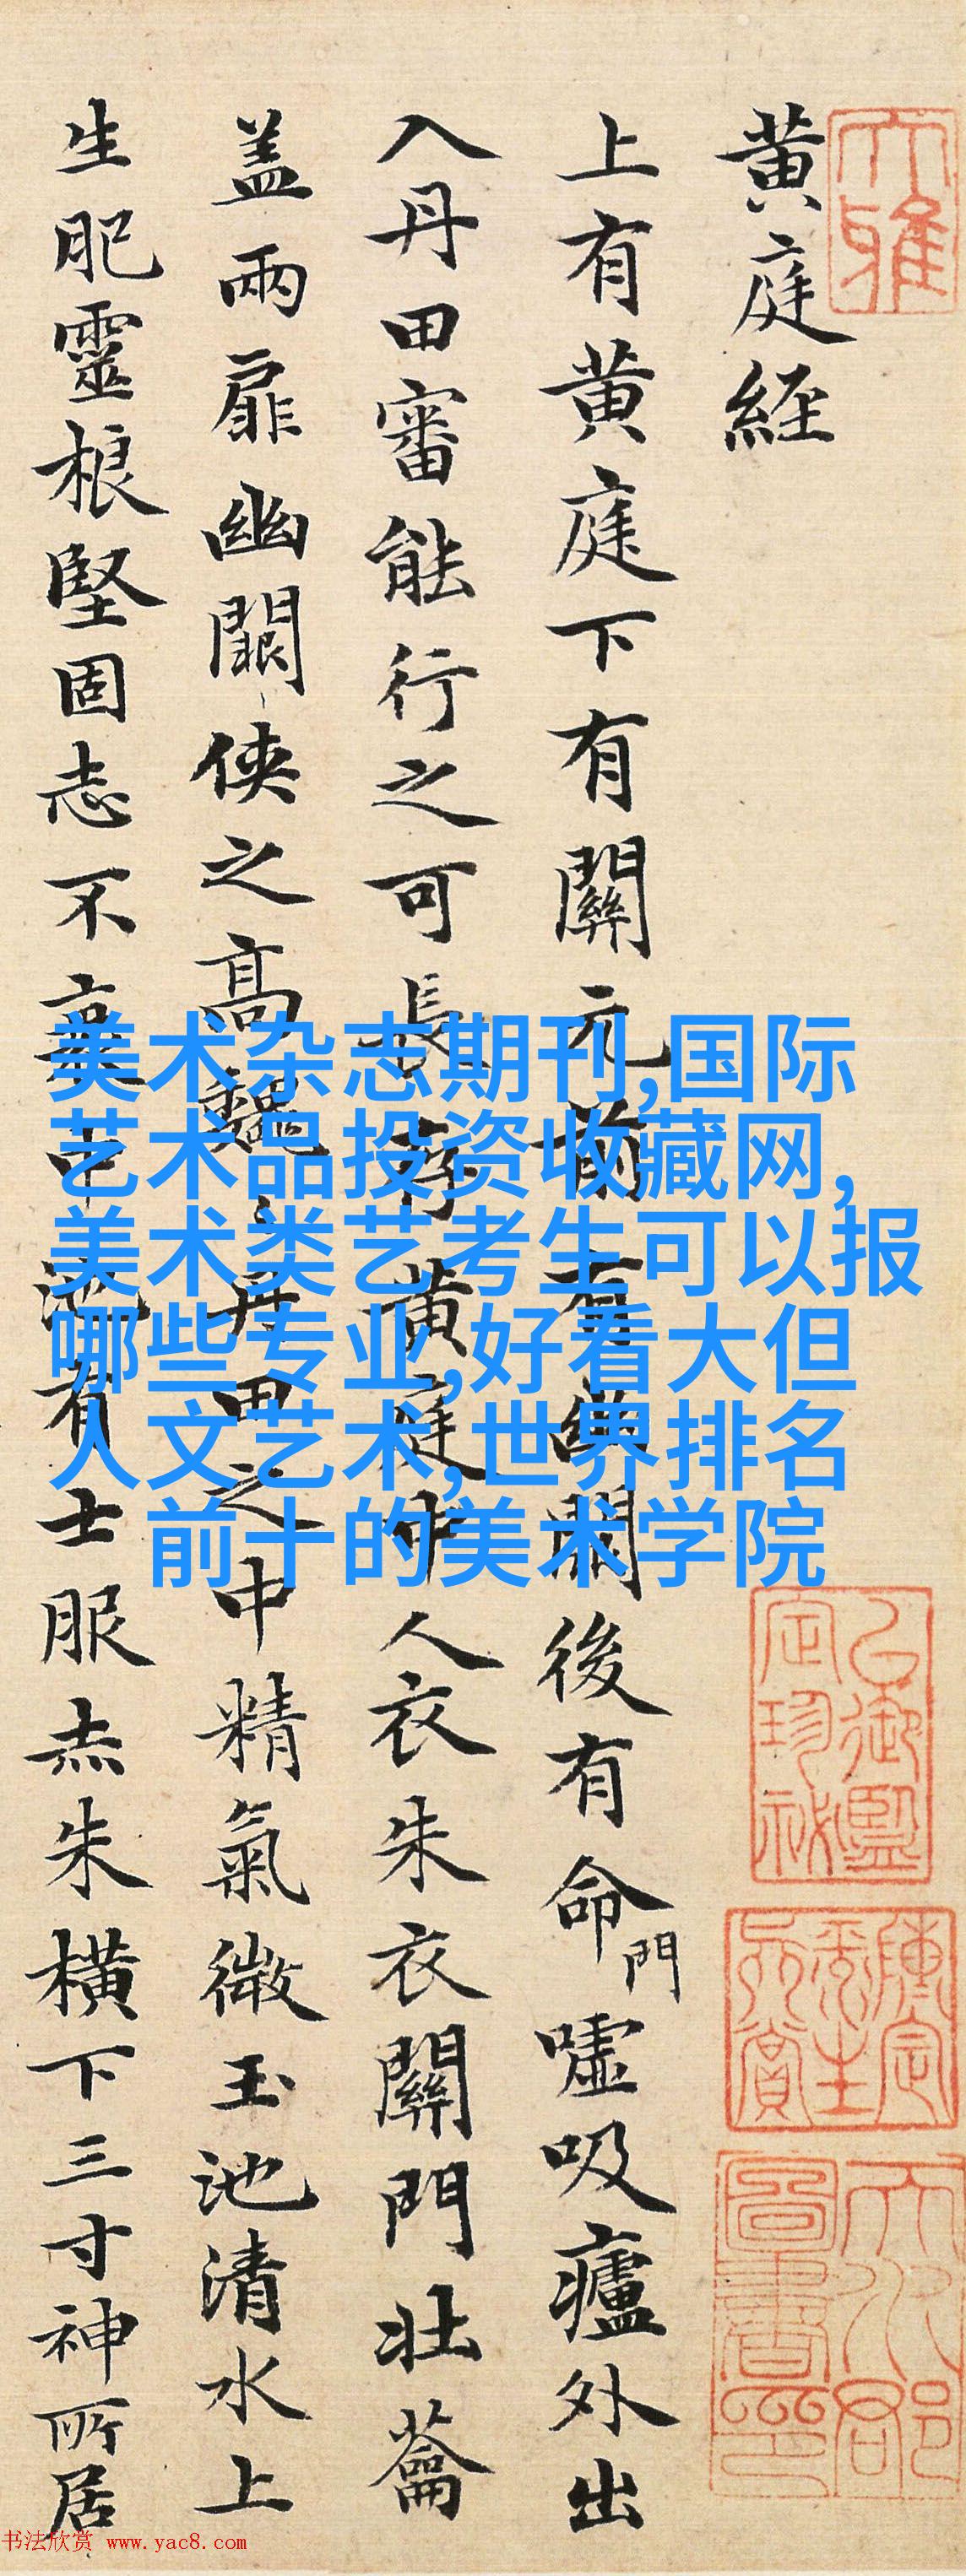 大雅
黄庭経
上有黄庭下有關元前有幽闕後有命門嘘吸廬外出
入丹田審能行之可長存黄庭中人衣朱衣關門壮蘥
盖兩扉幽闕俠之高巍丹田之中精氣微玉池清水上
生肥靈根堅固志不衰中池有士服赤朱横下三寸神所居
美术杂志期刊,国际
艺术品投资收藏网,
美术类艺考生可以报
哪些专业,好看大但
人文艺术,世界排名
前十的美术学院
书法欣赏 www.yac8.com